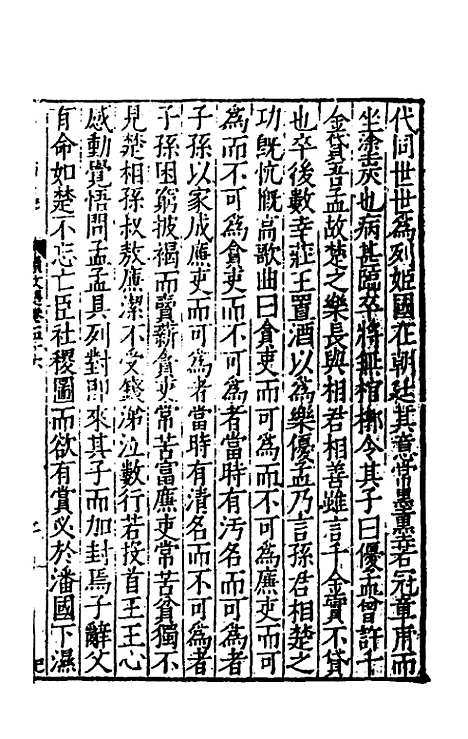 代同世世爲列姬國在朝廷其意常墨墨若冠章甫而
坐塗炭也病甚臨卒將無棺槨令其子曰優孟曾許千
金貸吾孟故楚之樂長與相君相善雖言千金實不貸
也卒後數年莊王置酒以爲樂優孟乃言孫君相楚之
功既忼慨高歌曲曰貪吏而可爲而不可爲廉吏而可
爲而不可爲貪吏而不可爲者當時有汚名而可爲者
子孫以家成廉吏而可爲者當時有清名而不可爲者
子孫困窮披褐而賣薪貪吏常苦富廉吏常苦貧獨不
見楚相孫叔敖廉潔不受錢涕泣數行若投首王王心
感動覺悟問孟孟具列對即來其子而加封焉子辭父
有命如楚不忘亡臣社稷圖而欲有賞必於潘國下濕